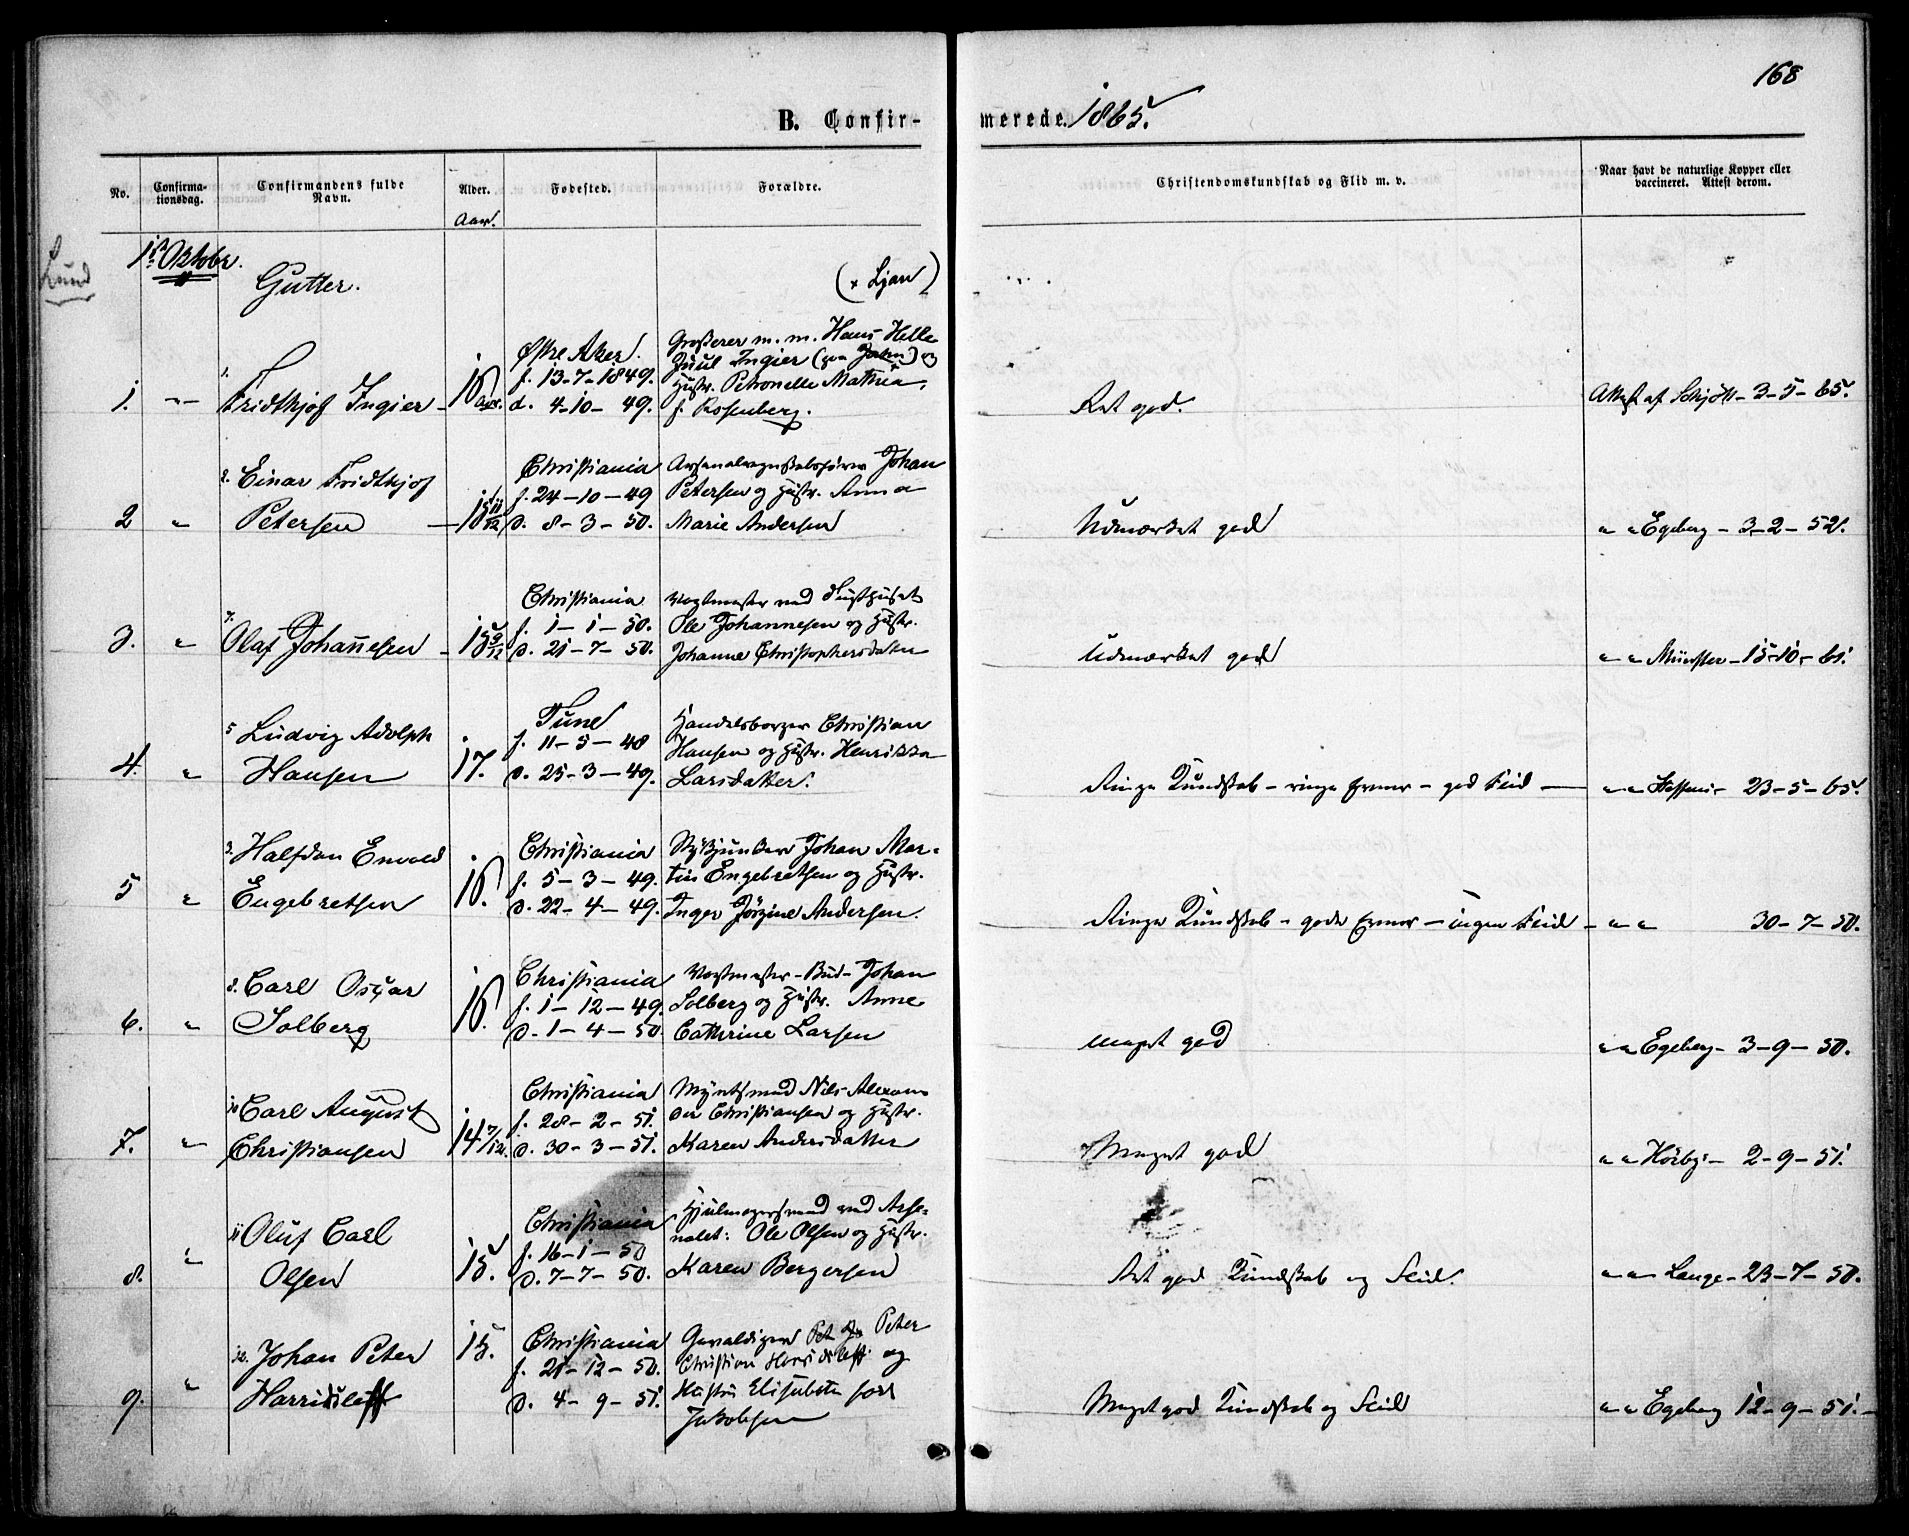 168
B. Confir-
merede. 1865.
No.
Confirma-
tionsdag.
Confirmandens fulde
Navn.
Alder.
Aar.
Fødested.
Forældre.
Christendomskundskab og Flid m. v.
Naar havt de naturlige Kopper eller
vaccineret. Attest derom.
Lund
1ste Oktobr.
Gutter.
(× Ljan)
1. 1. Fridthjof Ingier
16
Østre Aker.
f. 13-7-1849.
d. 4-10-49.
Grosserer m. m. Hans Helle
Juul Ingier (paa Ljan) og
Hustr. Petronelle Mathea,
f. Rosenberg.
Ret god.
Attest af Schjøtt - 3-5-65.
2 " 2. Einar Fridthjof
Petersen
15 11/12
Christiania
f. 24-10-49
d. 8-3-50.
Arsenalregnskabsfører Johan
Petersen og Hustr. Anna
Marie Andersen
Udmærket god
" " Egeberg - 3-2-52.
3. " 7. Olaf Johannesen
15 9/12
Christiania
f. 1-1-50.
d. 21-7-50.
Vagtmester ved Tugthuset
Ole Johannesen og Hustr.
Johanne Christophersdatter
Udmærket god
" " Münster - 15-10-61.
4. " 5 Ludvig Adolph
Hansen
17.
Tune
f. 11-5-48
d. 25-3-49.
Handelsborger Christian
Hansen og Hustr. Henrikka
Larsdatter.
Ringe Kundskab - ringe Evner - god Flid
" " Steffens - 23-5-65.
5 " 3. Halfdan Envold
Engebretsen
16.
Christiania
f. 5-3-49.
d. 22-4-49.
Stykjunker Johan Mar-
tin Engebretsen og Hustr.
Inger Jørgine Andersen.
Ringe Kundskab - gode Evner - ingen Flid
" " 30-7-50.
6. " 8. Carl Oscar
Solberg
16.
Christiania
f. 1-12-49.
d. 1-4-50.
Vagtmester-Bud- Johan
Solberg og Hustr. Anne
Cathrine Larsen
meget god
" " Egeberg - 3-9-50.
7. " 10 Carl August
Christiansen
14 7/12.
Christiania
f. 28-2-51.
d. 30-3-51.
Myntsmed Nils Alexan
der Christiansen og Hustr.
Karen Andersdatter
Meget god
" " Hörbye - 2-9-51.
8. " 11 Oluf Carl
Olsen
15.
Christiania
f. 16-1-50
d. 7-7-50.
Hjulmagersmed ved Arse-
nalet: Ole Olsen og Hustr.
Karen Bergersen
Ret god Kundskab og Flid.
" " Lange - 23-7-50.
9. " 12. Johan Peter
Harridsleff
15.
Christiania
f. 21-12-50.
d. 4-9-51.
Gevaldiger Peter
Christian Harridsleff og
Hustru Elisabeth født
Jakobsen
Meget god Kundskab og Flid
" " Egeberg 12-9-51.